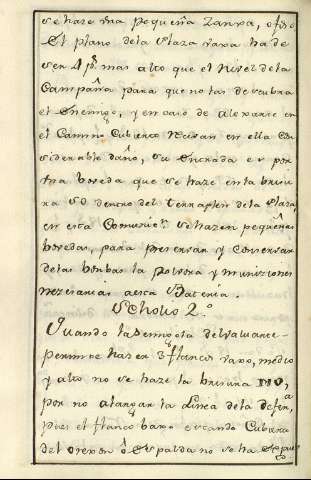 se haze vna pequeña Zanxa, o foso
El plano dela Plaza vaxa ha de
ser 4 ps. mas alto que el Nivel dela
Campaña para que no las descubra
el Enemigo, y en caso de aloxarse en
el Camino Cubierto Reciva en ella Con
siderable daño, su Entrada es por
vna boveda que se haze enla
so dentro del terraplen dela Plaza,
en esta Comunicn. se hazen pequeñas
bovedas, para preservar y Conservar
delas bombas la polvora y muniziones
nezesarias aesta Bateria.
Scholio 2º
Quando la semigola del valuarte
permite hazer 3 flancos vaxo, medio
y alto no se haze la
por no alargar la Linea dela defensa,
pues el flanco baxo estando Cubierto
del orexon ô Espalda no se ha